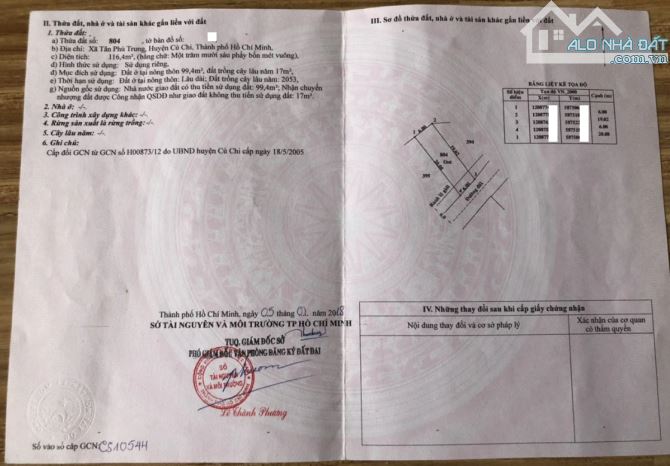 II. Thửa đất, nhà ở và tài sản khác gắn liền với đất
1. Thửa đất:
a) Thửa đất số: 804 , tờ bản đồ số:
b) Địa chỉ: Xã Tân Phú Trung, Huyện Củ Chi, Thành phố Hồ Chí Minh,
c) Diện tích: 116,4m², (bằng chữ: Một trăm mười sáu phẩy bốn mét vuông),
d) Hình thức sử dụng: Sử dụng riêng,
đ) Mục đích sử dụng: Đất ở tại nông thôn 99,4m²; đất trồng cây lâu năm 17m²,
e) Thời hạn sử dụng: Đất ở tại nông thôn: Lâu dài; Đất trồng cây lâu năm: 2053,
g) Nguồn gốc sử dụng: Nhà nước giao đất có thu tiền sử dụng đất: 99,4m²; Nhận chuyển
nhượng đất được Công nhận QSDĐ như giao đất không thu tiền sử dụng đất: 17m².
2. Nhà ở: -/-
3. Công trình xây dựng khác: -/-
4. Rừng sản xuất là rừng trồng: -/-
5. Cây lâu năm: -/-
6. Ghi chú:
Cấp đổi GCN từ GCN số H00873/12 do UBND huyện Củ Chi cấp ngày 18/5/2005
Thành phố Hồ Chí Minh, ngày 05 tháng 01 năm 2018
SỞ TÀI NGUYÊN VÀ MÔI TRƯỜNG TP HỒ CHÍ MINH
TUQ. GIÁM ĐỐC SỞ
PHÓ GIÁM ĐỐC VĂN PHÒNG ĐĂNG KÝ ĐẤT ĐAI
SỞ
TÀI NGUYÊN
VÀ MÔI TRƯỜNG
Lê Thành Phương
Số vào sổ cấp GCN: CS10544
III. Sơ đồ thửa đất, nhà ở và tài sản khác gắn liền với đất
ALO NHÀ ĐẤT
.com.vn
BẢNG LIỆT KÊ TỌA ĐỘ
Số hiệu điểm
Tọa độ VN_2000
Cạnh (m)
X(m)
Y(m)
1
2
3
4
1
6.00
19.02
6.00
20.00
804
394
395
Đường đất
IV. Những thay đổi sau khi cấp giấy chứng nhận
Nội dung thay đổi và cơ sở pháp lý
Xác nhận của cơ quan
có thẩm quyền